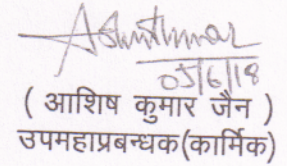 05/6/18
( आशिष कुमार जैन )
उपमहाप्रबन्धक(कार्मिक)